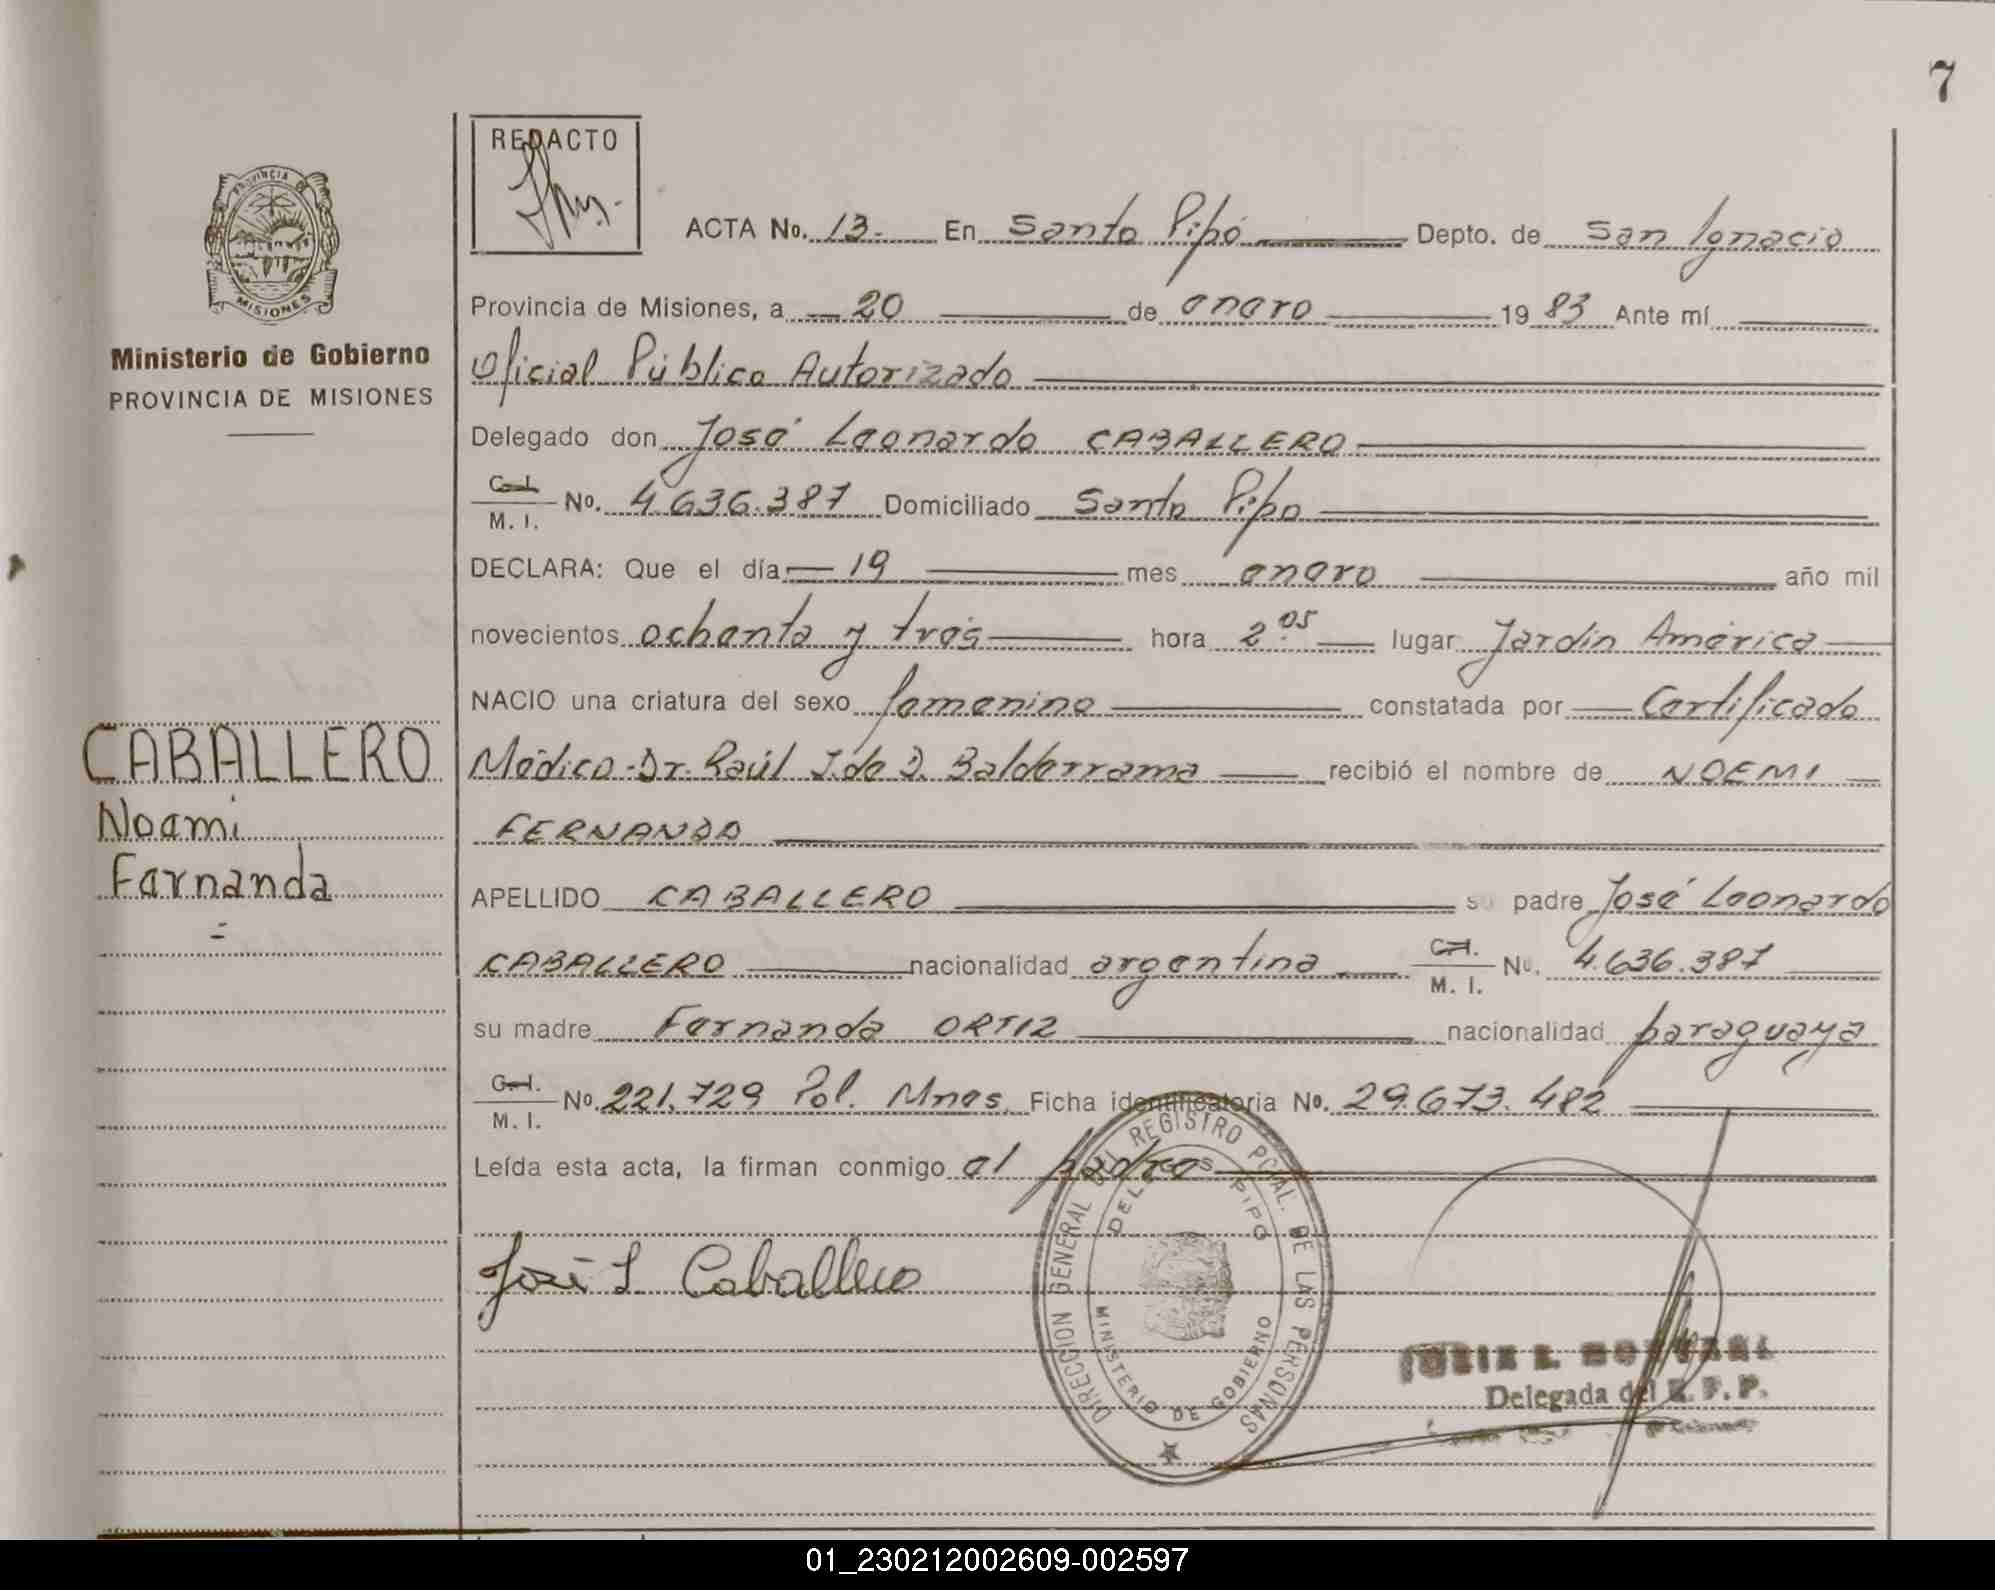 7
REDACTO
PROVINCIA DE
MISIONES
Ministerio de Gobierno
PROVINCIA DE MISIONES
CABALLERO
Noemi
Fernanda
ACTA No. 13.- En Santo Pipó Depto. de San Ignacio
Provincia de Misiones, a 20 de enero 1983 Ante mí
Oficial Público Autorizado
Delegado don José Leonardo CABALLERO
C. I.
M. I. No. 4.636.387 Domiciliado Santo Pipo
DECLARA: Que el día 19 mes enero año mil
novecientos ochenta y trés hora 2.05 lugar Jardín América
NACIO una criatura del sexo femenino constatada por Certificado
Médico-Dr. Raúl J. de D. Balderrama recibió el nombre de NOEMI
FERNANDA
APELLIDO CABALLERO su padre José Leonardo
CABALLERO nacionalidad argentina C. I. M. I. No. 4.636.387
su madre Fernanda ORTIZ nacionalidad paraguaya
C. I.
M. I. No. 221.729 Pol. Mnes. Ficha identificatoria No. 29.673.482
Leída esta acta, la firman conmigo el padre
José L Caballero
DIRECCION GENERAL DEL REGISTRO PCIAL. DE LAS PERSONAS
PIPO
MINISTERIO DE GOBIERNO
Delegada del R. P. P.
01_230212002609-002597